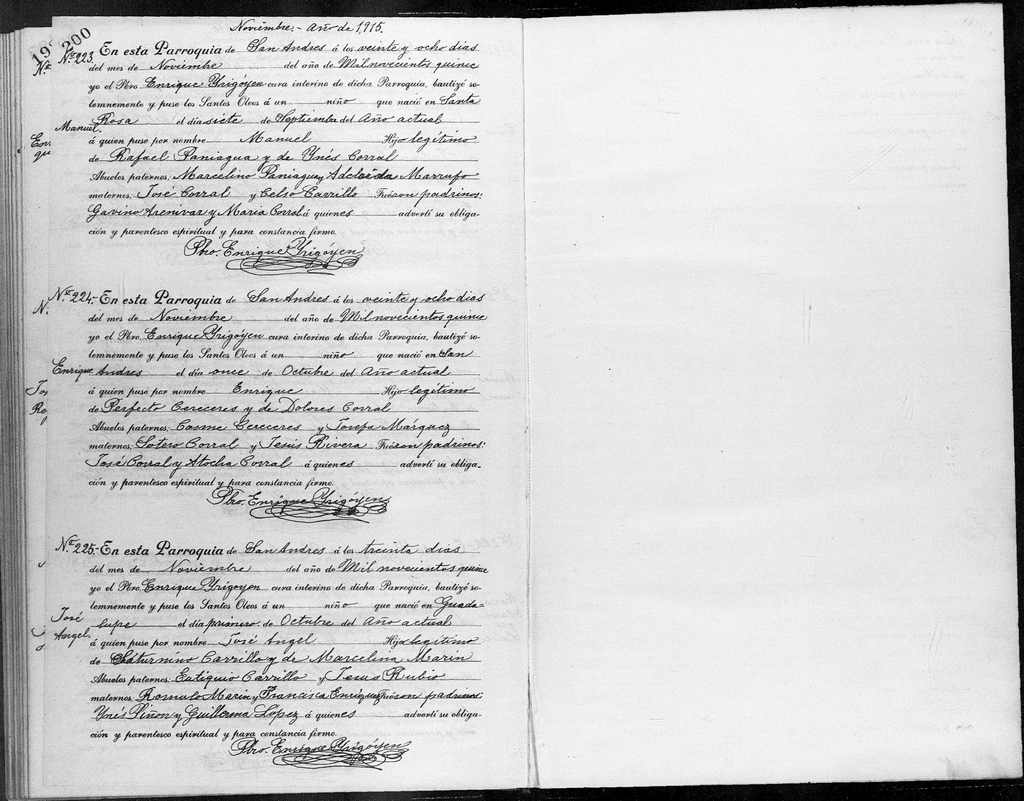 Noviembre.- año de 1,915.
200
Nº 223. En esta Parroquia de San Andres á los veinte y ocho dias
del mes de Noviembre del año de Mil novecientos quince
yo el Pbro. Enrique Yrigóyen cura interino de dicha Parroquia, bautizé so-
lemnemente y puse los Santos Oleos á un niño que nació en Santa
Manuel.
Rosa el dia siete de Septiembre del Año actual
á quien puse por nombre Manuel Hijo legítimo
de Rafael Paniagua y de Ynés Corral
Abuelos paternos. Marcelino Paniagua y Adelaida Marrufo
maternos. José Corral y Celso Carrillo Fueron padrinos:
Gavino Arenivar y Maria Corral á quienes advertí su obliga-
ción y parentesco espiritual y para constancia firmo.
Pbro. Enrique Yrigóyen
Nº 224.- En esta Parroquia de San Andres á los veinte y ocho dias
del mes de Noviembre del año de Mil novecientos quince
yo el Pbro. Enrique Yrigóyen cura interino de dicha Parroquia, bautizé so-
lemnemente y puse los Santos Oleos á un niño que nació en San
Enrique
Andres el dia once de Octubre del Año actual
á quien puse por nombre Enrique Hijo legítimo
de Perfecto Cereceres y de Dolores Corral
Abuelos paternos. Cosme Cereceres y Josefa Márquez
maternos. Sotero Corral y Jesús Rivera Fueron padrinos:
José Corral y Atocha Corral á quienes advertí su obliga-
ción y parentesco espiritual y para constancia firmo.
Pbro. Enrique Yrigóyen
Nº 225.- En esta Parroquia de San Andres á los treinta dias
del mes de Noviembre del año de Mil novecientos quince
yo el Pbro. Enrique Yrigoyen cura interino de dicha Parroquia, bautizé so-
lemnemente y puse los Santos Oleos á un niño que nació en Guada-
José
Angel.
lupe el dia primero de Octubre del Año actual
á quien puse por nombre José Angel Hijo legítimo
de Saturnino Carrillo y de Marcelina Marin
Abuelos paternos. Eutiquio Carrillo y Jesus Rubio
maternos. Romulo Marin y Francisca Enriquez Fueron padrinos:
Ynés Piñon y Guillerma López á quienes advertí su obliga-
ción y parentesco espiritual y para constancia firmo.
Pbro. Enrique Yrigóyen